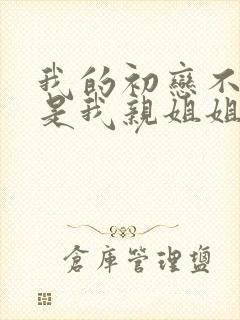 我的初戀不
是我親姐姐
倉庫管理鹽